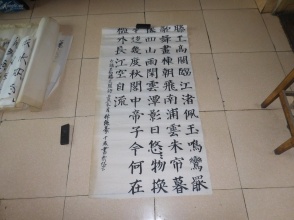 滕王高閣臨江渚佩玉鳴鸞罷
歌舞畫棟朝飛南浦雲朱帘暮
捲西山雨閑雲潭影日悠々物換
星移幾度秋閣中帝子今何在
檻外長江空自流